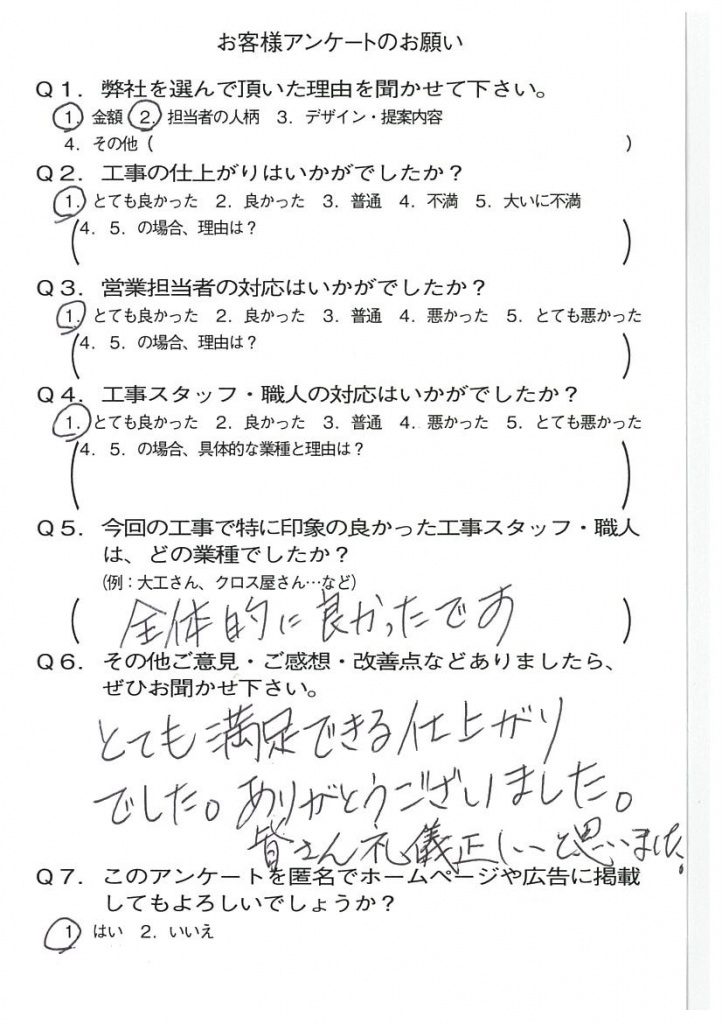 お客様アンケートのお願い
Ｑ１．弊社を選んで頂いた理由を聞かせて下さい。
１．金額　２．担当者の人柄　３．デザイン・提案内容
４．その他（　　　　　　　　　　）
Ｑ２．工事の仕上がりはいかがでしたか？
１．とても良かった　２．良かった　３．普通　４．不満　５．大いに不満
（４．５．の場合、理由は？　　　　　　　　　　）
Ｑ３．営業担当者の対応はいかがでしたか？
１．とても良かった　２．良かった　３．普通　４．悪かった　５．とても悪かった
（４．５．の場合、理由は？　　　　　　　　　　）
Ｑ４．工事スタッフ・職人の対応はいかがでしたか？
１．とても良かった　２．良かった　３．普通　４．悪かった　５．とても悪かった
（４．５．の場合、具体的な業種と理由は？　　　　　　　　　　）
Ｑ５．今回の工事で特に印象の良かった工事スタッフ・職人
は、どの業種でしたか？
（例：大工さん、クロス屋さん…など）
（全体的に良かったです）
Ｑ６．その他ご意見・ご感想・改善点などありましたら、
ぜひお聞かせ下さい。
とても満足できる仕上がり
でした。ありがとうございました。
皆さん礼儀正しいと思いました。
Ｑ７．このアンケートを匿名でホームページや広告に掲載
してもよろしいでしょうか？
１　はい　２．いいえ